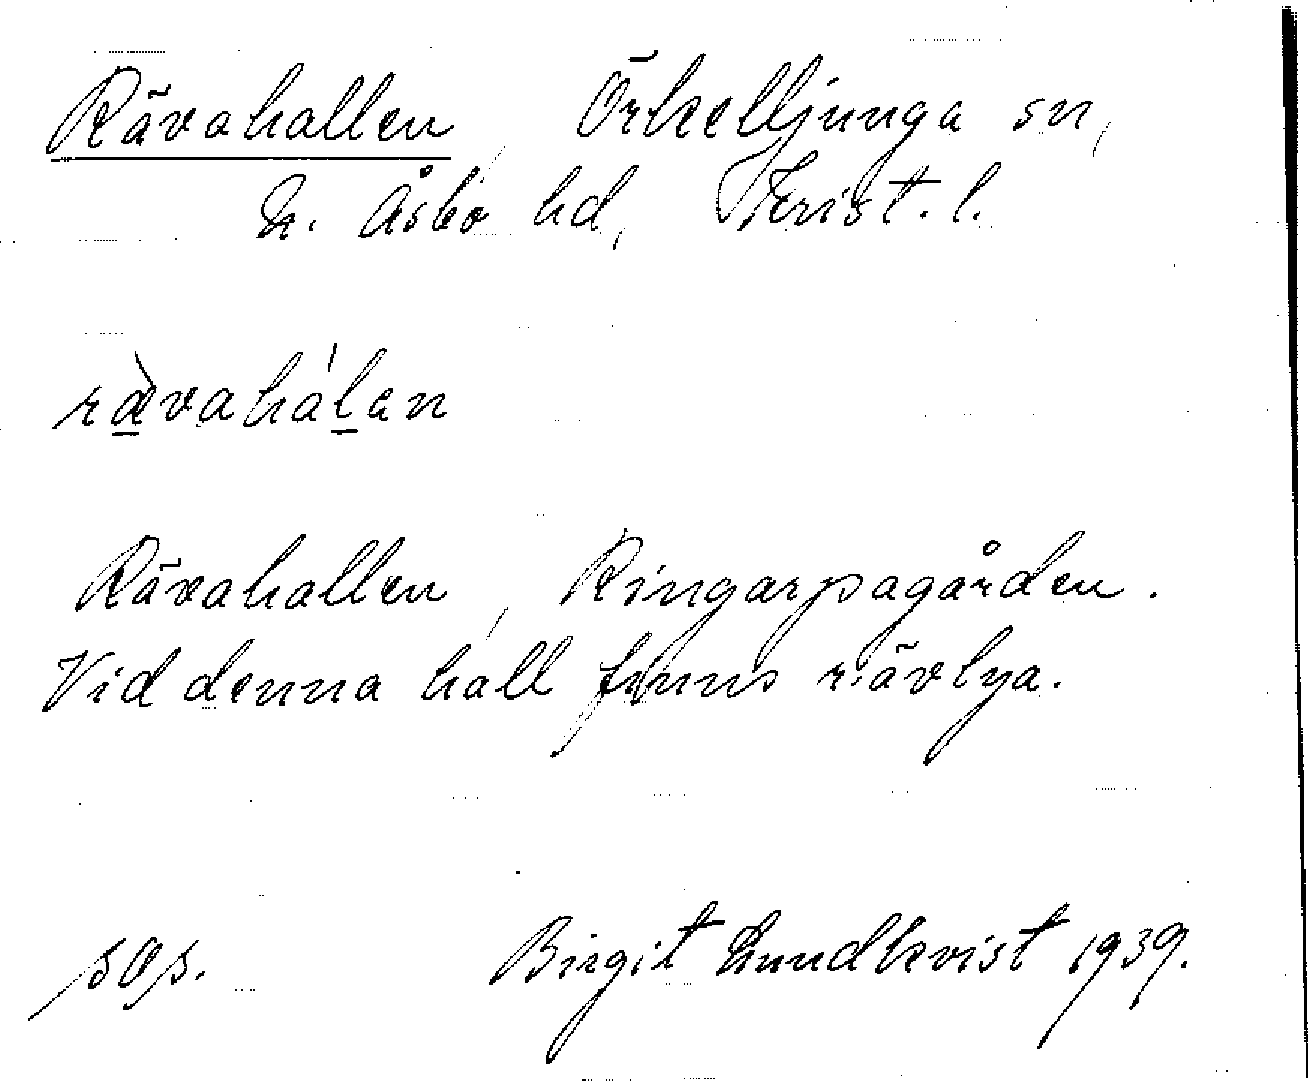 Rävahallen, Örkelljunga sn,
N. Åsbo hd, Krist. l.
rävahálan
Rävahallen, Ringarpagården.
Vid denna hall finns rävlya.
sås.
Birgit Lundkvist 1939.